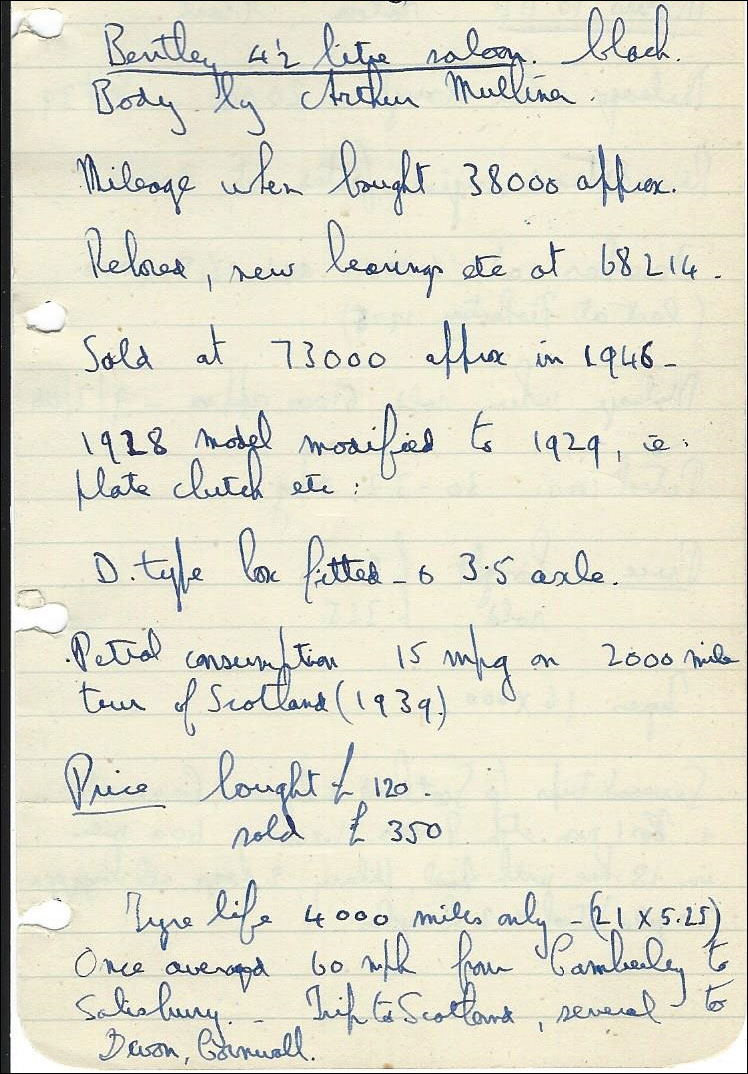 Bentley 4½ litre saloon. black.
Body by Arthur Mulliner.
Mileage when bought 38000 approx.
Rebored, new bearings etc at 68214.
Sold at 73000 approx in 1946-
1928 model modified to 1929, ie.
plate clutch etc:
D. type box fitted - 3.5 axle.
Petrol consumption 15 mpg on 2000 mile
tour of Scotland (1939)
Price bought £120.
sold £350
Tyre life 4000 miles only - (21 X 5.25)
Once averaged 60 mph from Camberley to
Salisbury. - Trip to Scotland, several to
Devon, Cornwall.